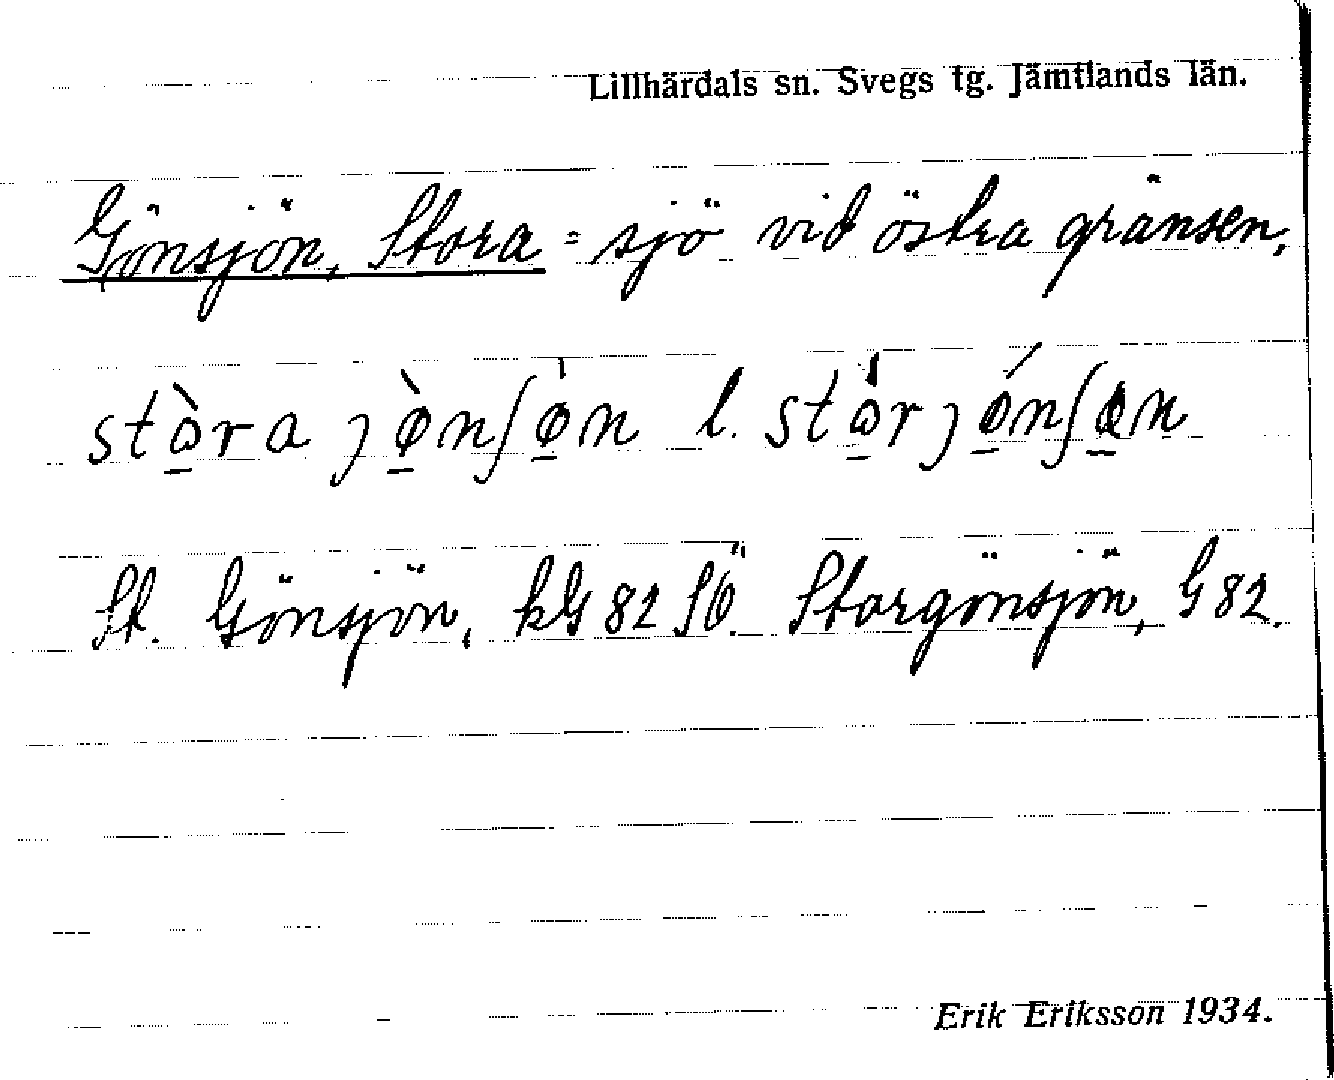 Lillhärdals sn. Svegs tg. Jämtlands län.
Gönsjön, Stora = sjö vid östra gränsen.
stò̠ra ȷø̠̀nʃø̠̀n l. stò̠rȷǿ̠nʃø̠n
St. Gönsjön, kG 82 SÖ. Storgönsjön, G 82.
Erik Eriksson 1934.